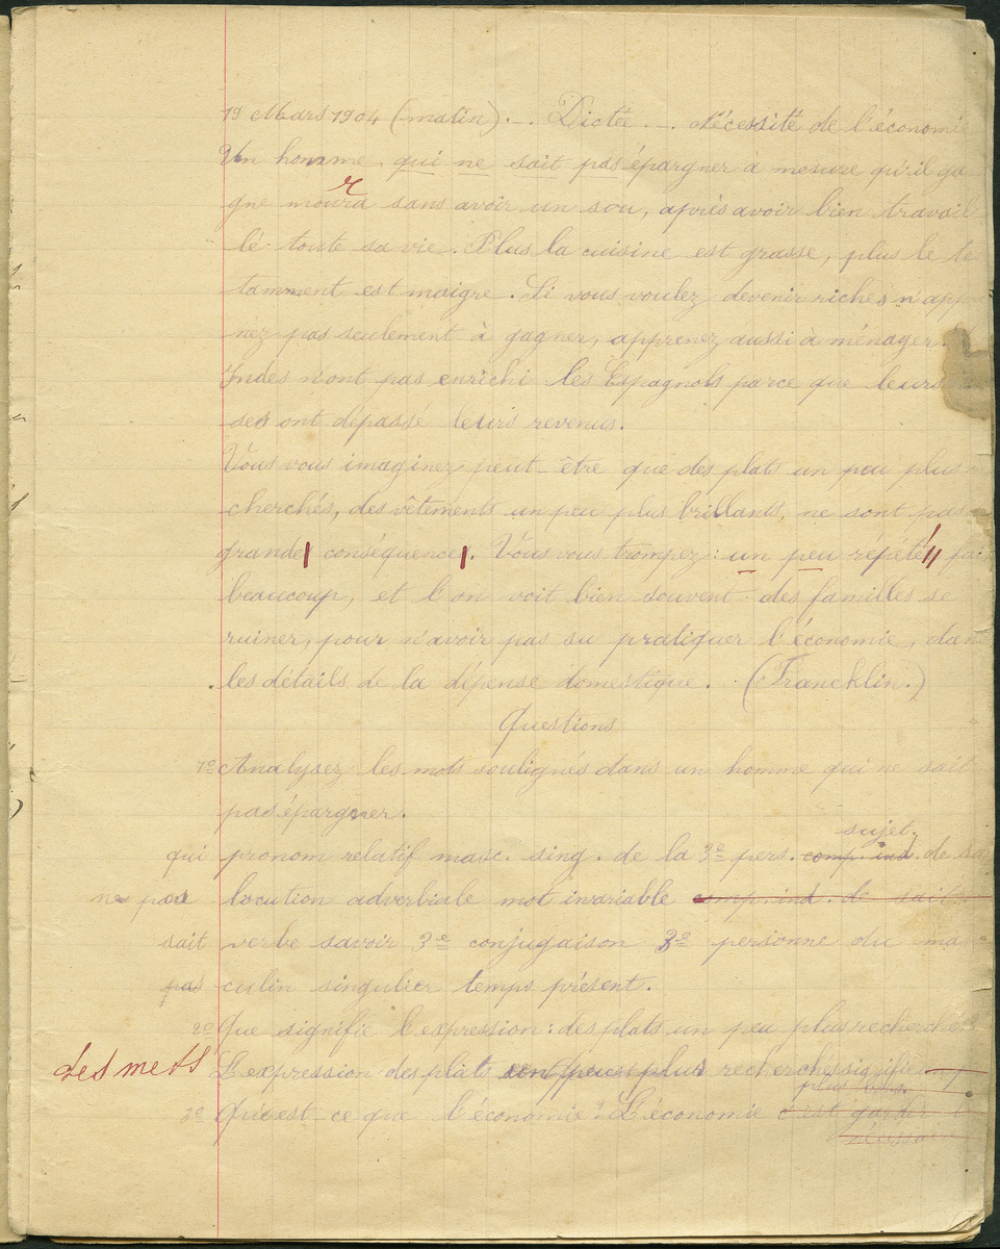 19 Mars 1904 (matin). _. Dictée _. Nécessité de l'économie
Un homme qui ne sait pas épargner à mesure qu'il ga
gne mourra sans avoir un sou, après avoir bien travail
lé toute sa vie. Plus la cuisine est grasse, plus le tes
tamment est maigre. Si vous voulez devenir riches n'appr
nez pas seulement à gagner, apprenez aussi à ménager.
Indes n'ont pas enrichi les Espagnols parce que leurs
ses ont dépassé leurs revenus.
Vous vous imaginez peut-être que des plats un peu plus
cherchés, des vêtements un peu plus brillants, ne sont pas
grande conséquence. Vous vous trompez: un peu répété fa
beaucoup, et l'on voit bien souvent des familles se
ruiner, pour n'avoir pas su pratiquer l'économie, dans
les détails de la dépense domestique. (Francklin.)
Questions
1º Analysez les mots soulignés dans un homme qui ne sait
pas épargner.
sujet.
qui pronom relatif masc. sing. de la 3e pers. comp. ind. de sait
ne pas locution adverbiale mot invariable comp. ind. de sait
sait verbe savoir 3e conjugaison 3e personne du mas
pas culin singulier temps présent.
2º Que signifie l'expression: des plats un peu plus recherchés
des mets L'expression des plats un peu plus recherchés signifie
plus bas.
3º Qu'est-ce que l'économie? L'économie c'est garder l
nécessaire